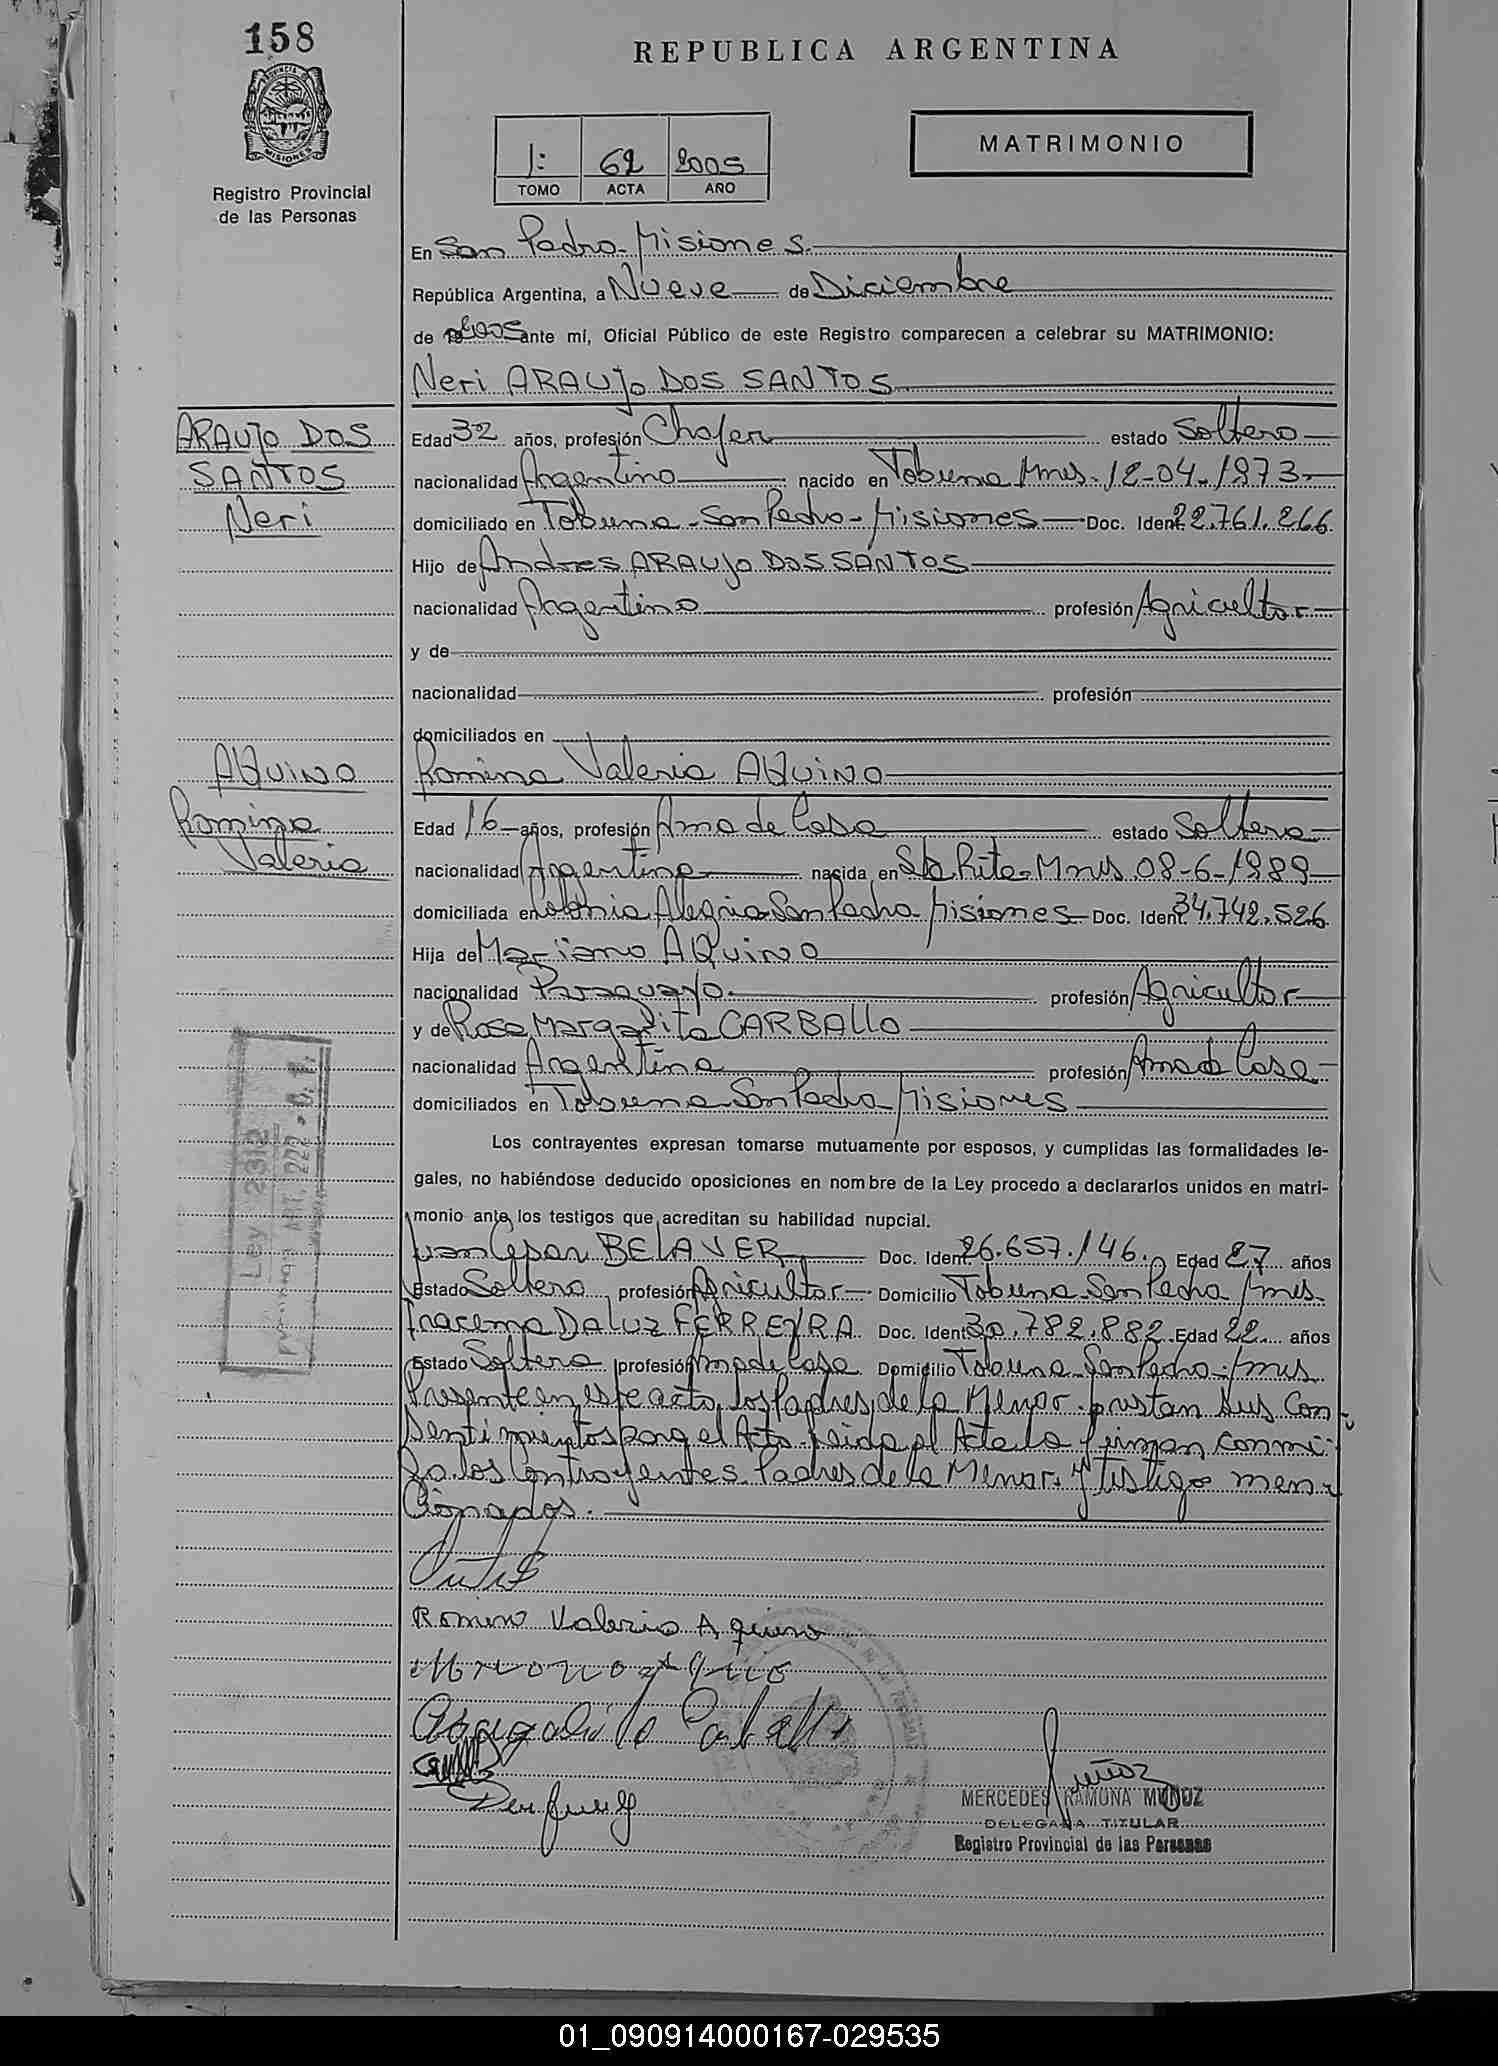 158
REPUBLICA ARGENTINA
PROVINCIA DE
MISIONES
Registro Provincial
de las Personas
MATRIMONIO
I: 62 2005
TOMO ACTA AÑO
En San Pedro-Misiones.
República Argentina, a Nueve de Diciembre
de 2005 ante mí, Oficial Público de este Registro comparecen a celebrar su MATRIMONIO:
Neri ARAUJO DOS SANTOS
ARAUJO DOS
SANTOS
Neri
Edad 32 años, profesión Chofer estado Soltero
nacionalidad Argentino nacido en Tobuna Mnes. 12-04-1973-
domiciliado en Tobuna-San Pedro-Misiones Doc. Ident 22.761.266
Hijo de Andres ARAUJO DOS SANTOS
nacionalidad Argentino profesión Agricultor
y de
nacionalidad profesión
domiciliados en
AQUINO
Romina
Valeria
Romina Valeria AQUINO
Edad 16 años, profesión Ama de Casa estado Soltera
nacionalidad Argentina nacida en Sta Rita-Mnes 08-6-1989
domiciliada en Colonia Alegria San Pedro Misiones Doc. Ident 34.742.526
Hija de Mariano AQUINO
nacionalidad Paraguayo. profesión Agricultor
y de Rosa Margarita CARBALLO
nacionalidad Argentina profesión Ama de Casa
domiciliados en Tobuna San Pedro Misiones
Los contrayentes expresan tomarse mutuamente por esposos, y cumplidas las formalidades le-
gales, no habiéndose deducido oposiciones en nombre de la Ley procedo a declararlos unidos en matri-
monio ante los testigos que acreditan su habilidad nupcial.
Juan Cesar BELAVER Doc. Ident 26.657.146. Edad 27 años
Estado Soltero profesión Agricultor Domicilio Tobuna San Pedro Mnes.
Iracema Da Luz FERREYRA Doc. Ident 30.782.882 Edad 22 años
Estado Soltera profesión Ama de Casa Domicilio Tobuna San Pedro-Mnes
Presente en este acto, los padres de la Menor. prestan sus Con-
sentimientos para el Acto. leida el Acta la firman conmi-
go los Contrayentes Padres de la Menor. y testigo men-
cionados.
Ley 2312
ART. 222
Romina Valeria Aquino
Carballo
MERCEDES RAMONA MUÑOZ
DELEGADA TITULAR
Registro Provincial de las Personas
01_090914000167-029535